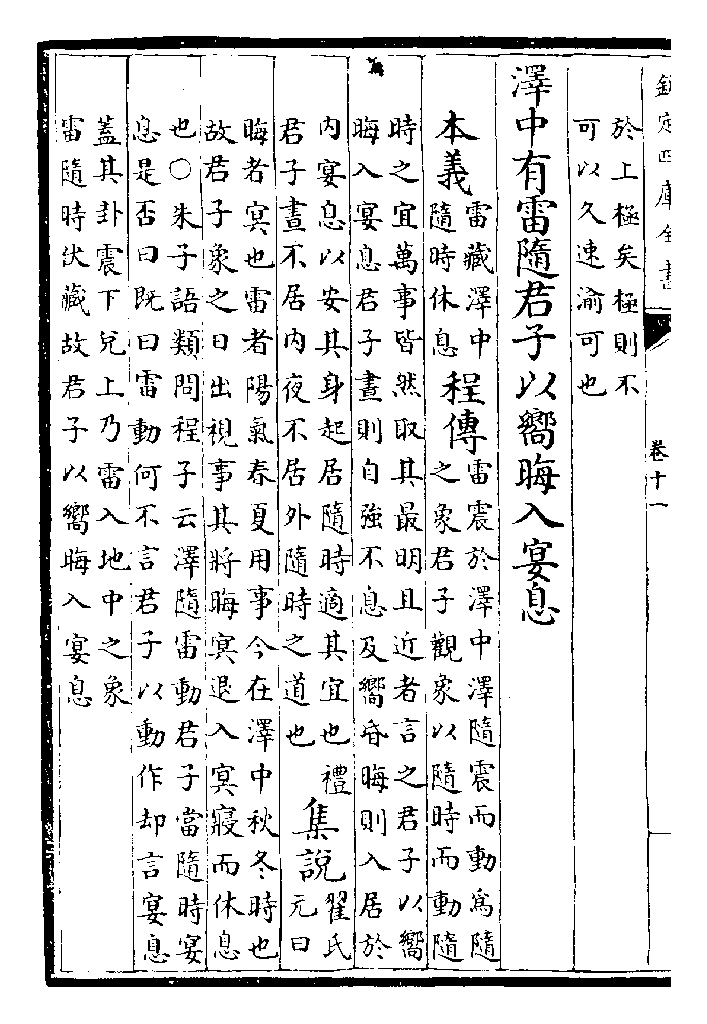 欽定四庫全書 卷十一
於上極矣極則不
可以久速渝可也
澤中有雷隨君子以嚮晦入宴息
本義
雷藏澤中
隨時休息
程傳
雷震於澤中澤隨震而動為隨
之象君子觀象以隨時而動隨
時之宜萬事皆然取其最明且近者言之君子以嚮
晦入宴息君子晝則自強不息及嚮昏晦則入居於
內宴息以安其身起居隨時適其宜也禮
君子晝不居內夜不居外隨時之道也
集說
翟氏
元曰
晦者冥也雷者陽氣春夏用事今在澤中秋冬時也
故君子象之日出視事其將晦冥退入冥寢而休息
也○朱子語類問程子云澤隨雷動君子當隨時宴
息是否曰既曰雷動何不言君子以動作却言宴息
蓋其卦震下兌上乃雷入地中之象
雷隨時伏藏故君子以嚮晦入宴息